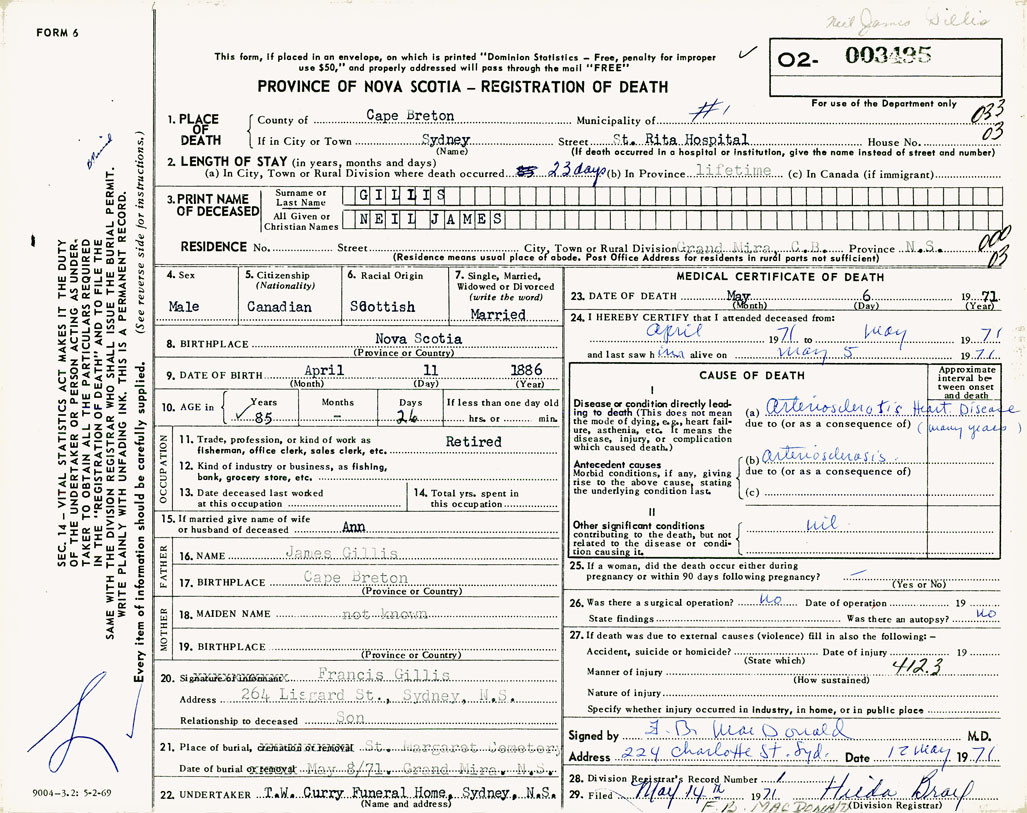 Neil James Gillis
FORM 6
This form, if placed in an envelope, on which is printed "Dominion Statistics – Free, penalty for improper
use $50," and properly addressed will pass through the mail "FREE"
O2- 003495
For use of the Department only
PROVINCE OF NOVA SCOTIA – REGISTRATION OF DEATH
033
03
1. PLACE OF DEATH
County of Cape Breton Municipality of #1
If in City or Town Sydney Street St. Rita Hospital House No.
(Name) (If death occurred in a hospital or institution, give the name instead of street and number)
2. LENGTH OF STAY (in years, months and days)
(a) In City, Town or Rural Division where death occurred 23 days (b) In Province lifetime (c) In Canada (if immigrant)
3. PRINT NAME OF DECEASED
Surname or Last Name GILLIS
All Given or Christian Names NEIL JAMES
000
03
RESIDENCE No. Street City, Town or Rural Division Grand Mira, C.B. Province N.S.
(Residence means usual place of abode. Post Office Address for residents in rural parts not sufficient)
4. Sex
Male
5. Citizenship
(Nationality)
Canadian
6. Racial Origin
Scottish
7. Single, Married,
Widowed or Divorced
(write the word)
Married
8. BIRTHPLACE Nova Scotia
(Province or Country)
9. DATE OF BIRTH April 11 1886
(Month) (Day) (Year)
10. AGE in
Years Months Days If less than one day old
85 – 26 hrs. or min.
OCCUPATION
11. Trade, profession, or kind of work as Retired
fisherman, office clerk, sales clerk, etc.
12. Kind of industry or business, as fishing,
bank, grocery store, etc.
13. Date deceased last worked
at this occupation
14. Total yrs. spent in
this occupation
15. If married give name of wife
or husband of deceased Ann
FATHER
16. NAME James Gillis
17. BIRTHPLACE Cape Breton
(Province or Country)
MOTHER
18. MAIDEN NAME not known
19. BIRTHPLACE
(Province or Country)
20. Signature of informant Francis Gillis
Address 264 Lisgard St., Sydney, N.S.
Relationship to deceased Son
21. Place of burial, cremation or removal St. Margaret Cemetery
Date of burial or removal May 8/71. Grand Mira, N.S.
22. UNDERTAKER T.W. Curry Funeral Home, Sydney, N.S.
(Name and address)
MEDICAL CERTIFICATE OF DEATH
23. DATE OF DEATH May 6 1971
(Month) (Day) (Year)
24. I HEREBY CERTIFY that I attended deceased from:
April 1971 to May 1971
and last saw him alive on May 5 1971
CAUSE OF DEATH
Approximate
interval be-
tween onset
and death
I
Disease or condition directly lead-
ing to death (This does not mean
the mode of dying, e.g., heart fail-
ure, asthenia, etc. It means the
disease, injury, or complication
which caused death.)
(a) Arteriosclerotic Heart Disease
due to (or as a consequence of) (many years)
Antecedent causes
Morbid conditions, if any, giving
rise to the above cause, stating
the underlying condition last.
(b) Arteriosclerosis.
due to (or as a consequence of)
(c)
II
Other significant conditions
contributing to the death, but not
related to the disease or condi-
tion causing it.
nil
25. If a woman, did the death occur either during
pregnancy or within 90 days following pregnancy? –
(Yes or No)
26. Was there a surgical operation? No Date of operation 19
State findings Was there an autopsy? No
27. If death was due to external causes (violence) fill in also the following: –
Accident, suicide or homicide? Date of injury 19
(State which)
Manner of injury 412.3
(How sustained)
Nature of injury
Specify whether injury occurred in industry, in home, or in public place
Signed by F. B. MacDonald M.D.
Address 224 Charlotte St. Syd. Date 12 May 1971
28. Division Registrar's Record Number 1
29. Filed May 14th 1971 Hilda Bray
(Division Registrar)
F. B. MACDONALD
SEC. 14 – VITAL STATISTICS ACT MAKES IT THE DUTY
OF THE UNDERTAKER OR PERSON ACTING AS UNDER-
TAKER TO OBTAIN ALL THE PARTICULARS REQUIRED
IN THE "REGISTRATION OF DEATH" AND TO FILE THE
SAME WITH THE DIVISION REGISTRAR WHO SHALL ISSUE THE BURIAL PERMIT.
WRITE PLAINLY WITH UNFADING INK. THIS IS A PERMANENT RECORD.
Every item of information should be carefully supplied. (See reverse side for instructions.)
9004-3.2: 5-2-69